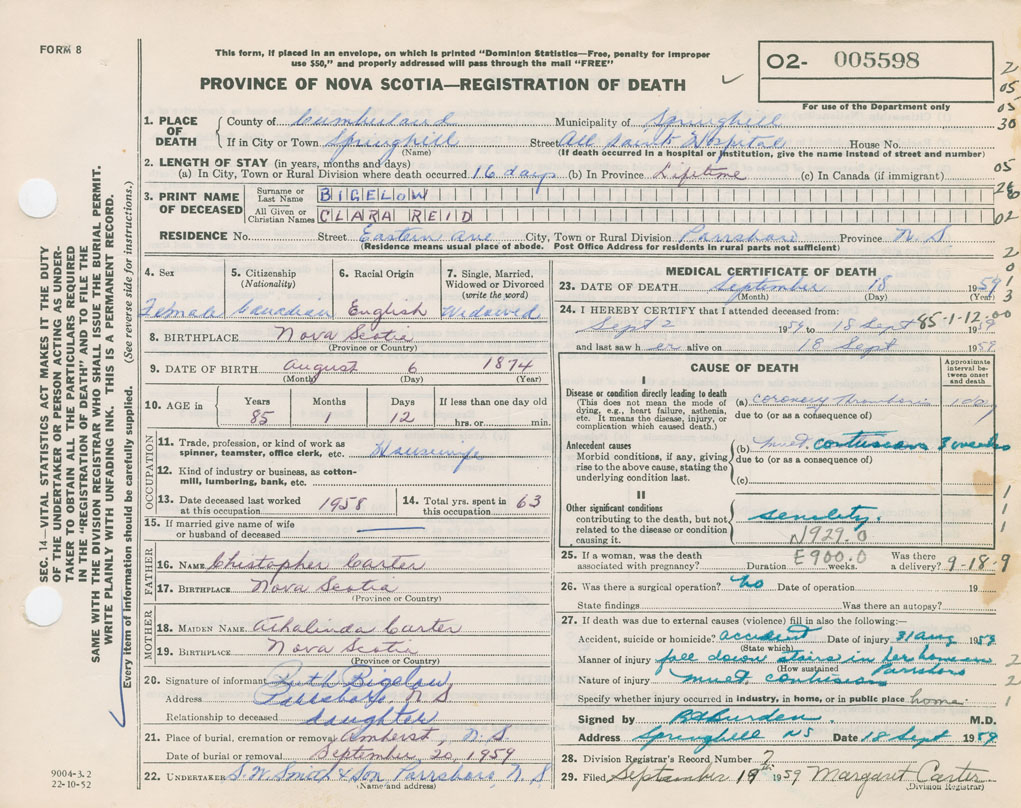 FORM 8
This form, if placed in an envelope, on which is printed "Dominion Statistics—Free, penalty for improper
use $50," and properly addressed will pass through the mail "FREE"
PROVINCE OF NOVA SCOTIA—REGISTRATION OF DEATH
O2- 005598
For use of the Department only
2
05
05
30
05
02
2
0
1
3
SEC. 14—VITAL STATISTICS ACT MAKES IT THE DUTY
OF THE UNDERTAKER OR PERSON ACTING AS UNDER-
TAKER TO OBTAIN ALL THE PARTICULARS REQUIRED
IN THE "REGISTRATION OF DEATH" AND TO FILE THE
SAME WITH THE DIVISION REGISTRAR WHO SHALL ISSUE THE BURIAL PERMIT.
WRITE PLAINLY WITH UNFADING INK. THIS IS A PERMANENT RECORD.
Every item of information should be carefully supplied. (See reverse side for instructions.)
1. PLACE OF DEATH
County of Cumberland Municipality of Springhill
If in City or Town Springhill Street All Saints Hospital House No.
(Name) (If death occurred in a hospital or institution, give the name instead of street and number)
2. LENGTH OF STAY (in years, months and days)
(a) In City, Town or Rural Division where death occurred 16 days (b) In Province Lifetime (c) In Canada (if immigrant)
3. PRINT NAME OF DECEASED
Surname or Last Name BIGELOW
All Given or Christian Names CLARA REID
RESIDENCE No. Street Eastern Ave City, Town or Rural Division Parrsboro Province N.S
(Residence means usual place of abode. Post Office Address for residents in rural parts not sufficient)
4. Sex 5. Citizenship 6. Racial Origin 7. Single, Married,
(Nationality) Widowed or Divorced
(write the word)
Female Canadian English Widowed
8. BIRTHPLACE Nova Scotia
(Province or Country)
9. DATE OF BIRTH August 6 1874
(Month) (Day) (Year)
10. AGE in Years Months Days If less than one day old
85 1 12 hrs. or min.
OCCUPATION
11. Trade, profession, or kind of work as
spinner, teamster, office clerk, etc. Housewife
12. Kind of industry or business, as cotton-
mill, lumbering, bank, etc.
13. Date deceased last worked
at this occupation 1958
14. Total yrs. spent in
this occupation 63
15. If married give name of wife
or husband of deceased
FATHER
16. NAME Chistopher Carter
17. BIRTHPLACE Nova Scotia
(Province or Country)
MOTHER
18. MAIDEN NAME Athalinda Carter
19. BIRTHPLACE Nova Scotia
(Province or Country)
20. Signature of informant Ruth Bigelow
Address Parrsboro, N.S
Relationship to deceased daughter
21. Place of burial, cremation or removal Amherst, N.S
Date of burial or removal September 20, 1959
22. UNDERTAKER S. W. Smith & Son Parrsboro N.S
(Name and address)
9004-3.2
22-10-52
MEDICAL CERTIFICATE OF DEATH
23. DATE OF DEATH September 18 1959
(Month) (Day) (Year)
24. I HEREBY CERTIFY that I attended deceased from: 85-1-12.00
Sept 2 1959 to 18 Sept 1959
and last saw h er alive on 18 Sept 1959
CAUSE OF DEATH
Approximate
interval be-
tween onset
and death
I
Disease or condition directly leading to death
(This does not mean the mode of
dying, e.g., heart failure, asthenia,
etc. It means the disease, injury, or
complication which caused death.)
(a) coronary thrombosis
due to (or as a consequence of)
Antecedent causes
Morbid conditions, if any, giving
rise to the above cause, stating the
underlying condition last.
(b) mult. contusions 3 weeks
due to (or as a consequence of)
(c)
II
Other significant conditions
contributing to the death, but not
related to the disease or condition
causing it.
senility.
N929.0
1
1
1
25. If a woman, was the death
associated with pregnancy? Duration E900.0 weeks. Was there
a delivery? 9-18-9
26. Was there a surgical operation? no Date of operation 19
State findings Was there an autopsy?
27. If death was due to external causes (violence) fill in also the following:—
Accident, suicide or homicide? accident Date of injury 31 aug 1959
(State which)
Manner of injury fall down stairs in her home in
Parrsboro
(How sustained
Nature of injury mult. contusions
Specify whether injury occurred in industry, in home, or in public place home
2
2
1
Signed by Burden M.D.
Address Springhill NS Date 18 Sept 1959
28. Division Registrar's Record Number 7
29. Filed September 19th 1959 Margaret Carter
(Division Registrar)